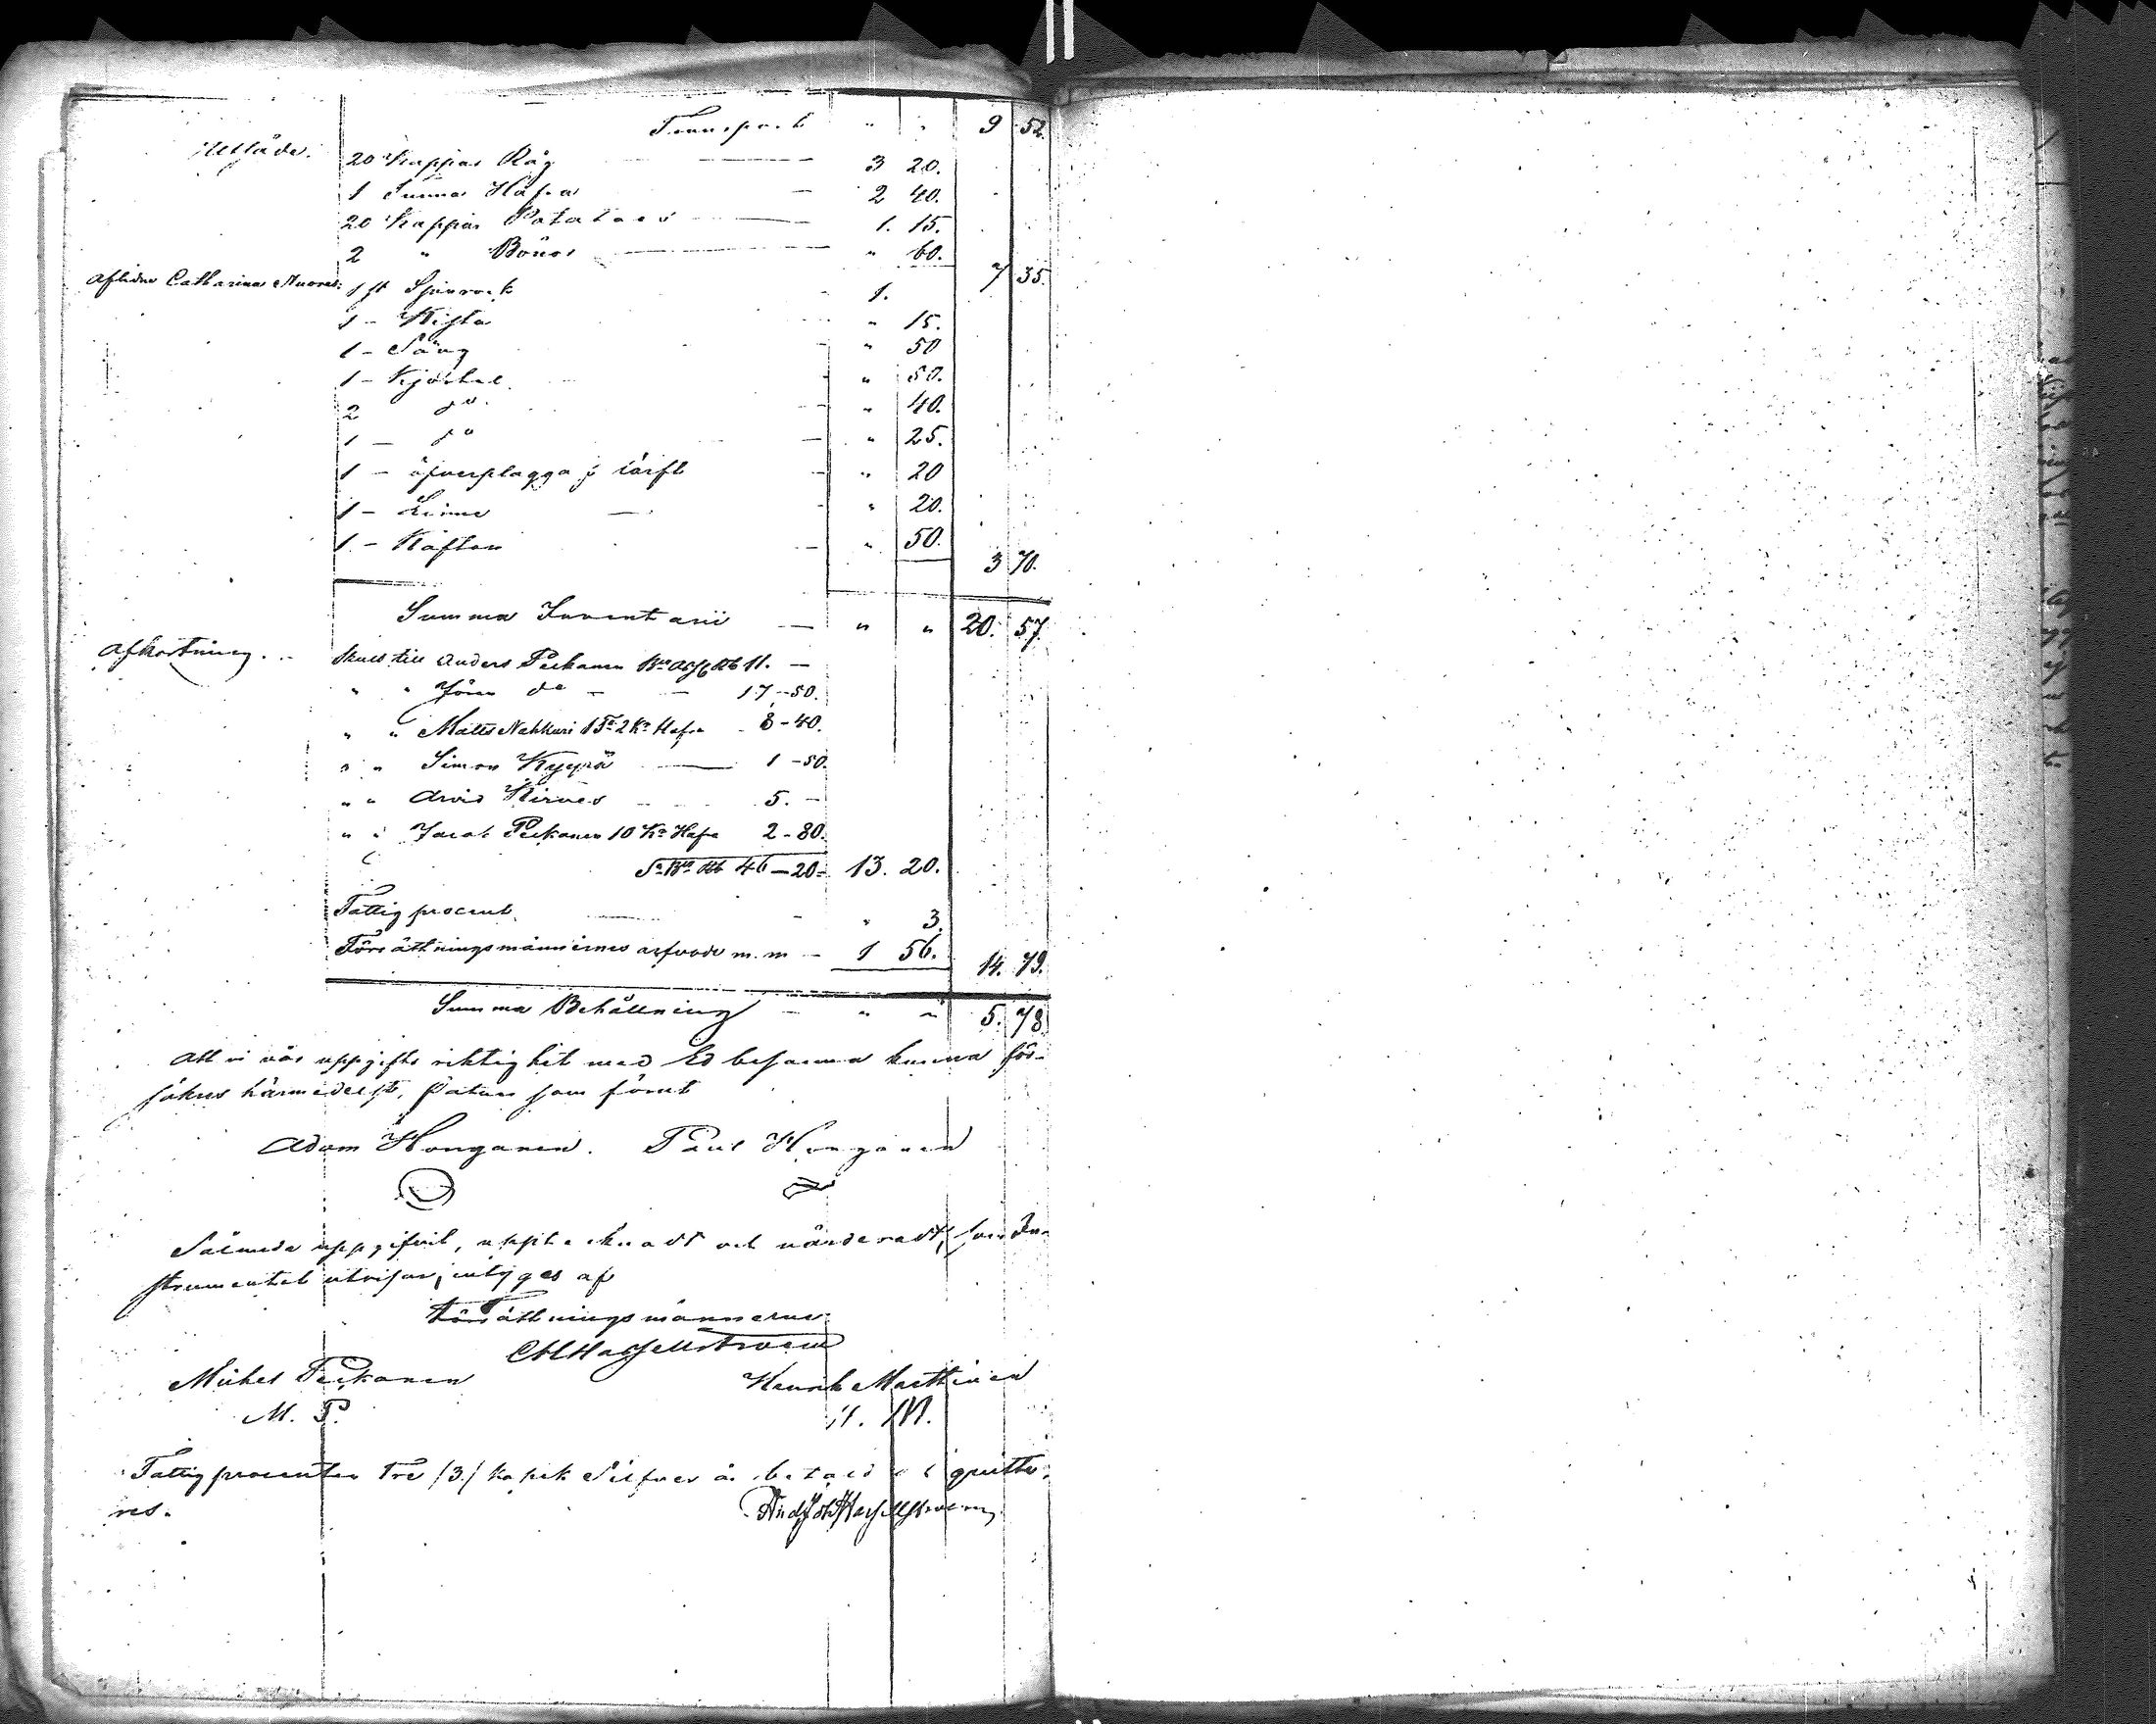 Transport " " 9 52.
Utsäde. 20 Kappar Råg — 3 20.
1 Tunna Hafra — 2 40.
20 Kappar Potataes — 1. 15.
2 " Bönor — " 60. 7 35.
Aflidne Catharinas 1 st Spinrock 1.
1 - Kista " 15.
1 - Säng " 50
1 - Kjortel " 50.
2 do " 40.
1 — do — " 25.
1 — öfverplagga — " 20
1 - — " 20.
1. - Kaftan — " 50. 3 70.
Summa Inventarii — " " 20. 57.
Afkortning. Skuld till Anders Peckanen 11. —
" " Jöran do — 17 - 50.
" " Matts Nahkuri 1 Ta 2 Kr Hafra 8 - 40.
" " Simon Kyyrä — 1 - 50.
" " Arvid Hirves 5. —
" " Jacob Peckanen 10 Kr Hafra 2 - 80.
Sa Bco Rb 46 — 20 - 13. 20.
Fattigprocent — " 3.
Förrättningsmännernes arfvode m. m — 1 56. 14. 79.
Summa Behållning — " " 5. 78
Att vi vår uppgifts riktighet med Ed besanna kunna för-
säkras härmedelst, Datum som förut
Adam Honganen. Paul Honganen
Sålunda uppgifvit, upptecknadt och värderadt, som In-
strumentet utvisar, intyges af
Förrättningsmännerne
Hassellstroem
Michel Peckanen Henrik Marttinen
M. P. H. M.
Fattigprocenten Tre /3/ kopek Silfver är betald och quitte-
res. Hassellstroem